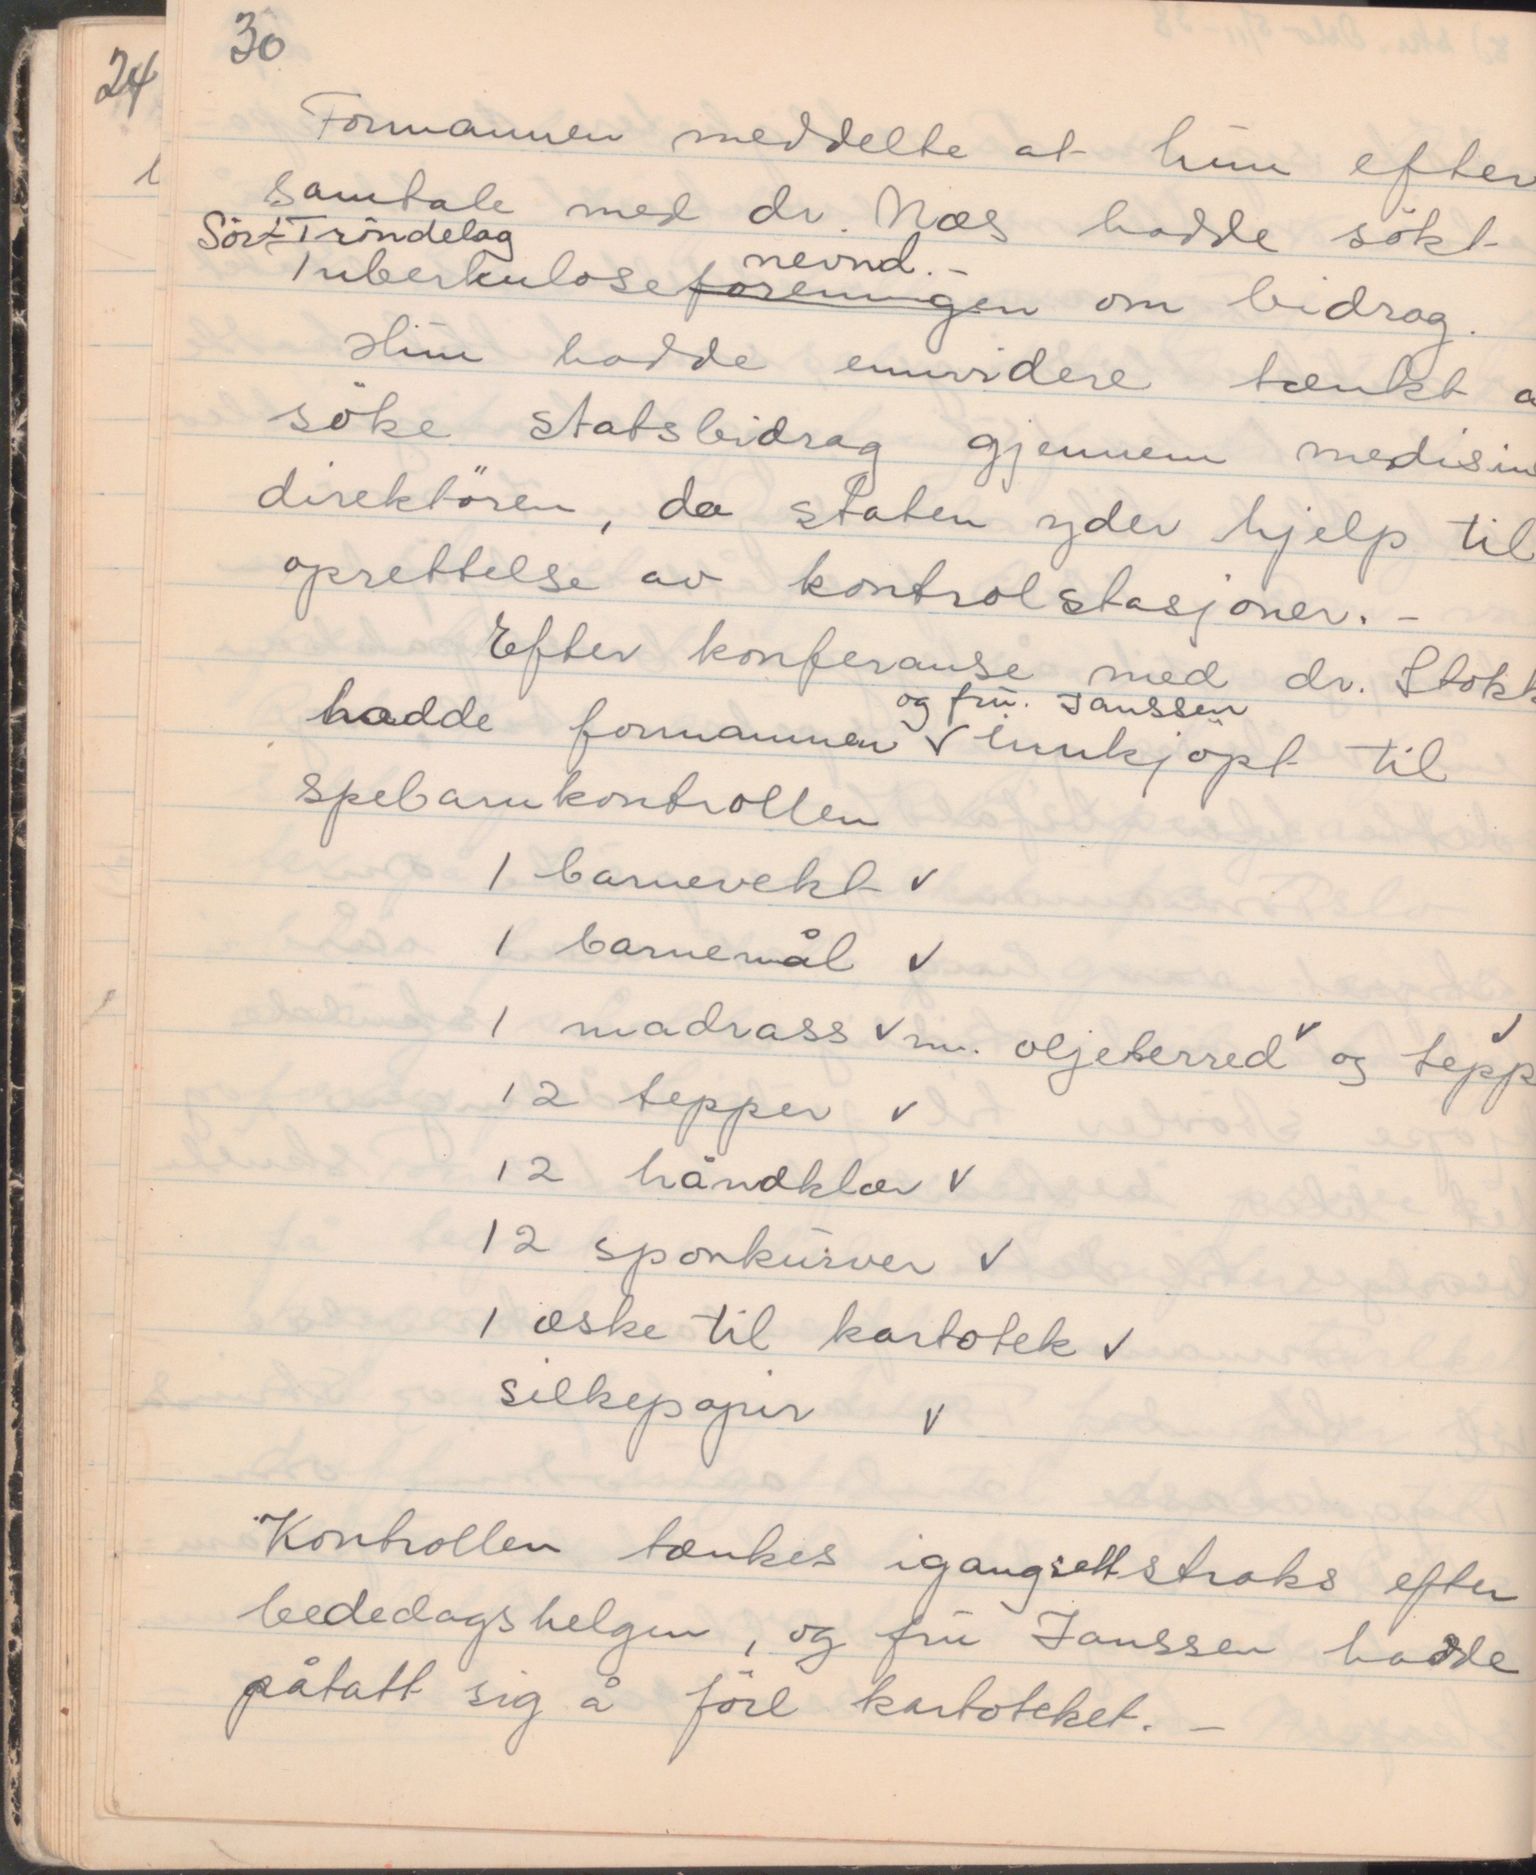 30
24
Formannen meddelte at hun efter
samtale med dr. Næs hadde søkt
Sör-Tröndelag nevnd.-
Tuberkuloseforeningen om bidrag.
Hun hadde ennvidere tænkt a
söke statsbidrag gjennem medisin
direktören, da staten yder hjelp til
oprettelse av kontrolstasjoner. -
Efter konferanse med dr. Stokk
og fru. Janssen
hadde formannen ✓ innkjöpt til
spebarnkontrollen
1 barnevekt ✓
1 barnemål ✓
1 madrass ✓ m. oljeterred ✓ og tepp ✓
12 tepper ✓
12 håndklær ✓
12 sponkurver ✓
1 æske til kartotek ✓
silkepapir ✓
Kontrollen tænkes igangsett straks efter
bededagshelgen, og fru Janssen hadde
påtatt sig å före kartoteket. -